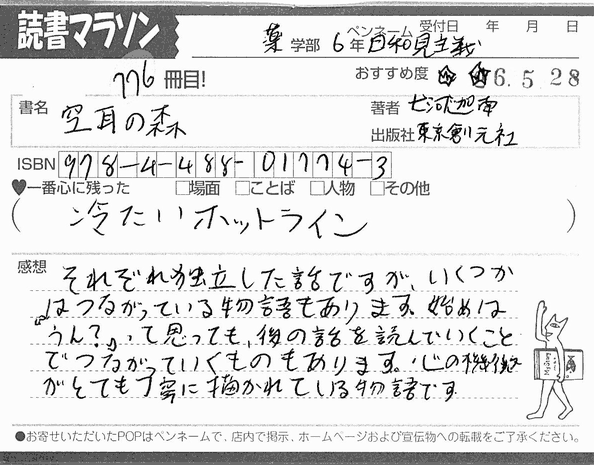 読書マラソン
受付日 年 月 日
薬 学部 6年 ペンネーム 日和見主義
776 冊目!
おすすめ度
6.5.28
書名 空耳の森
著者 七河迦南
出版社 東京創元社
ISBN 978-4-488-01774-3
♥一番心に残った □場面 □ことば □人物 □その他
(冷たいホットライン)
感想
それぞれ独立した話ですが、いくつか
はつながっている物語もあります。始めは
"うん?"って思っても、後の話を読んでいくこと
でつながっていくものもあります。心の機微
がとても丁寧に描かれている物語です
●お寄せいただいたPOPはペンネームで、店内で掲示、ホームページおよび宣伝物への転載をご了承ください。